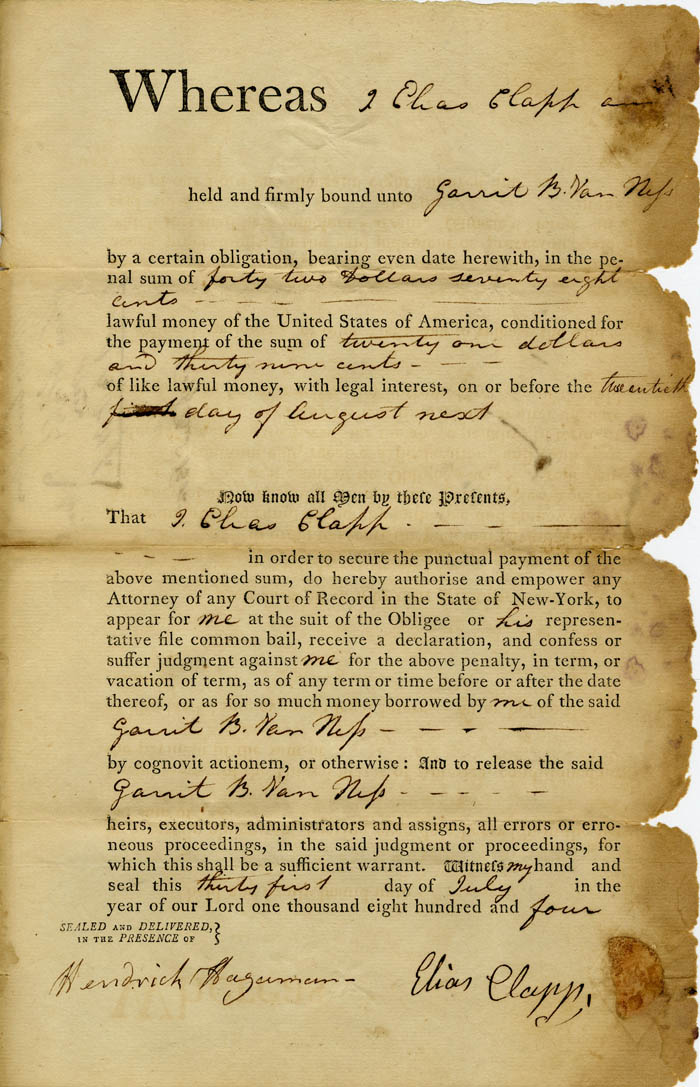 Whereas I Elias Clapp am
held and firmly bound unto Garrit B. Van Neſs
by a certain obligation, bearing even date herewith, in the pe-
nal sum of forty two Dollars seventy eight
cents - - - -
lawful money of the United States of America, conditioned for
the payment of the sum of twenty one dollars
and thirty nine cents - - -
of like lawful money, with legal interest, on or before the twentieth
day of August next
Now know all Men by theſe Preſents,
That I. Elias Clapp. - - -
- - - in order to secure the punctual payment of the
above mentioned sum, do hereby authorise and empower any
Attorney of any Court of Record in the State of New-York, to
appear for me at the suit of the Obligee or his represen-
tative file common bail, receive a declaration, and confess or
suffer judgment against me for the above penalty, in term, or
vacation of term, as of any term or time before or after the date
thereof, or as for so much money borrowed by me of the said
Garrit B. Van Neſs - - - -
by cognovit actionem, or otherwise: And to release the said
Garrit B. Van Neſs - - - - -
heirs, executors, administrators and assigns, all errors or erro-
neous proceedings, in the said judgment or proceedings, for
which this shall be a sufficient warrant. Witneſs my hand and
seal this thirty first day of July in the
year of our Lord one thousand eight hundred and four
SEALED AND DELIVERED,
IN THE PRESENCE OF
Hendrick Hagaman - Elias Clapp,